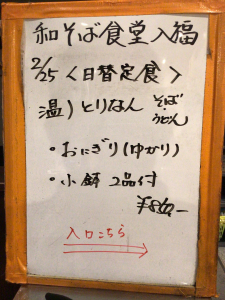 和そば食堂入福
2/25 <日替定食>
温) とりなん そば
うどん
・おにぎり(ゆかり)
・小鉢 2品付
入口こちら